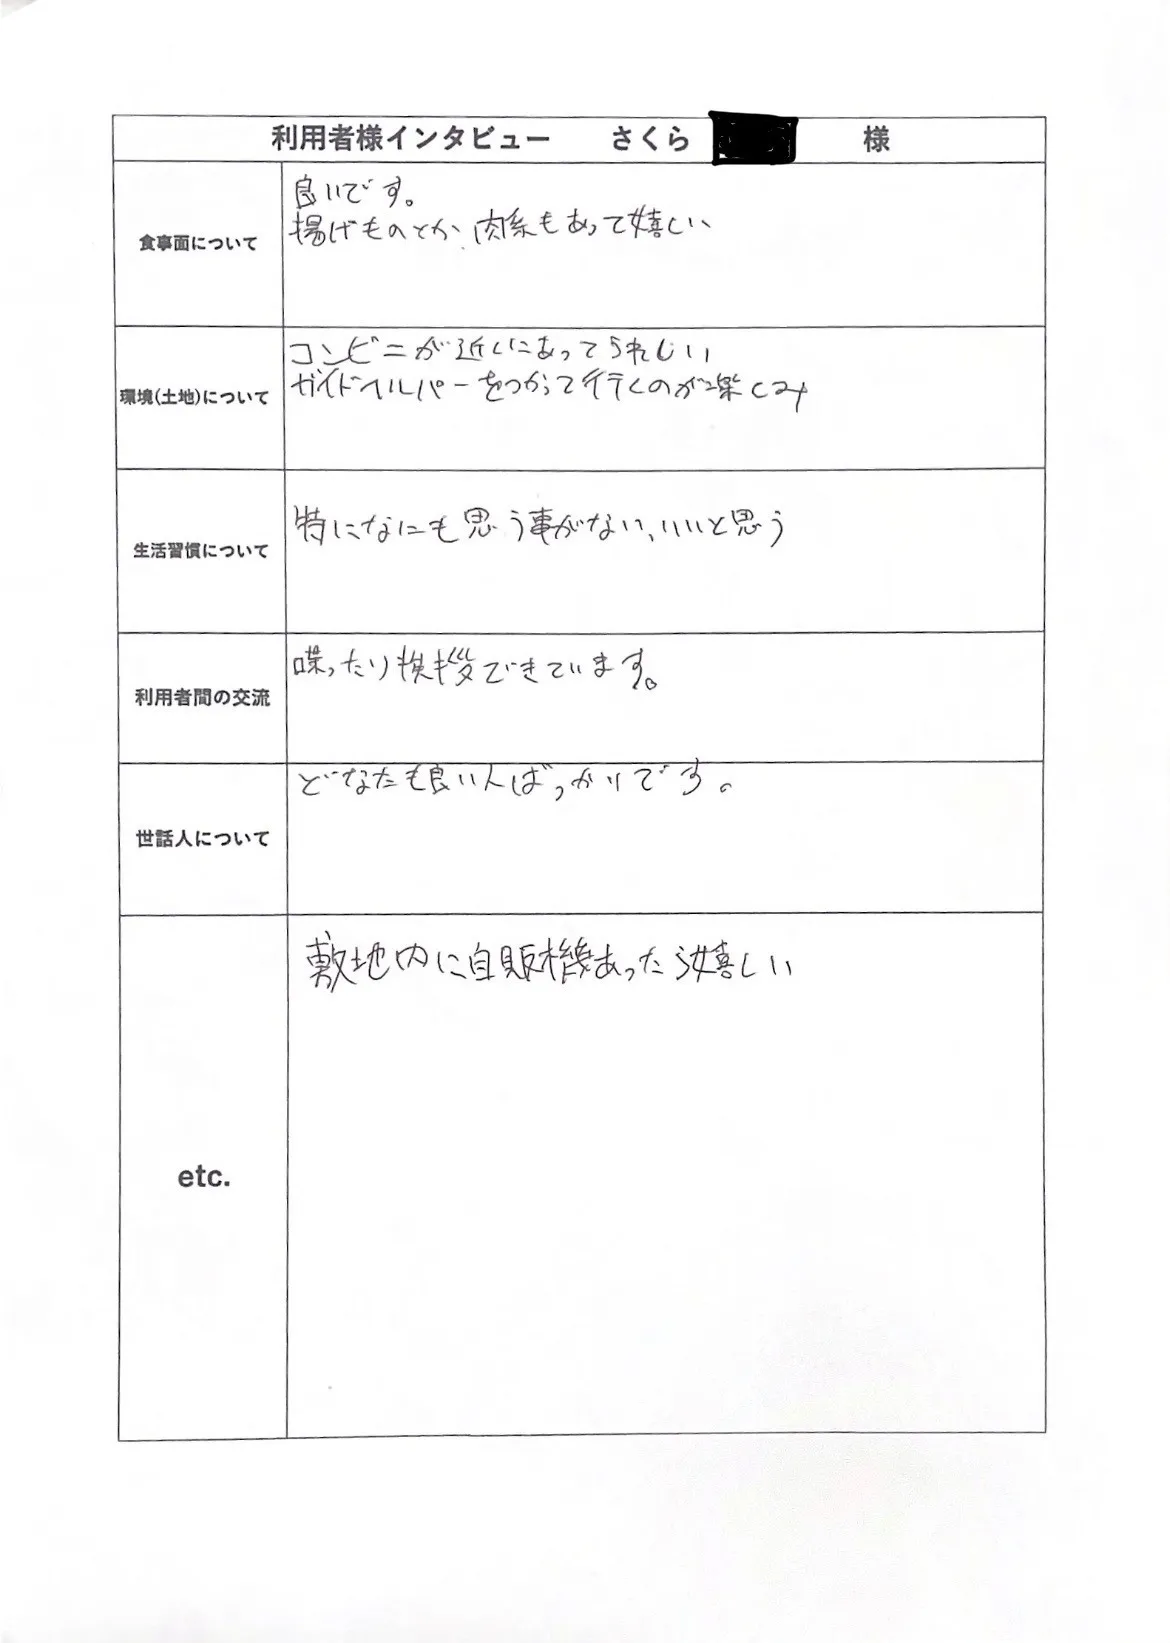 利用者様インタビュー さくら 様
食事面について
良いです。
揚げものとか、肉系もあって嬉しい
環境(土地)について
コンビニが近くにあってうれしい
ガイドヘルパーをつかって行くのが楽しみ
生活習慣について
特になにも思う事がない、いいと思う
利用者間の交流
喋ったり挨拶できています。
世話人について
どなたも良い人ばっかりです。
etc.
敷地内に自販機あったら嬉しい